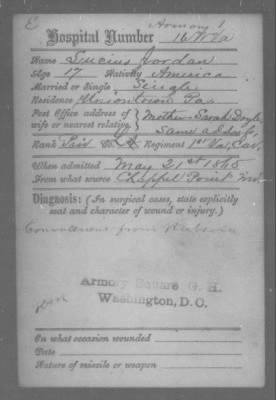 E
Armory 1
Hospital Number 16 W Va
Name Lucius Jordan
Age 17 Nativity America
Married or Single Single
Residence Uniontown Pa
Post Office address of wife or nearest relative, Mother Sarah Doyle
same address
Rank Priv Co. Regiment 1st Va. Cav.
When admitted May 21st 1865
From what source Chappel Point Md
Diagnosis: (In surgical cases, state explicitly
seat and character of wound or injury.)
Convalescent from Rubeola
Armory Square G. H.
Washington, D.C.
On what occasion wounded
Date
Nature of missile or weapon